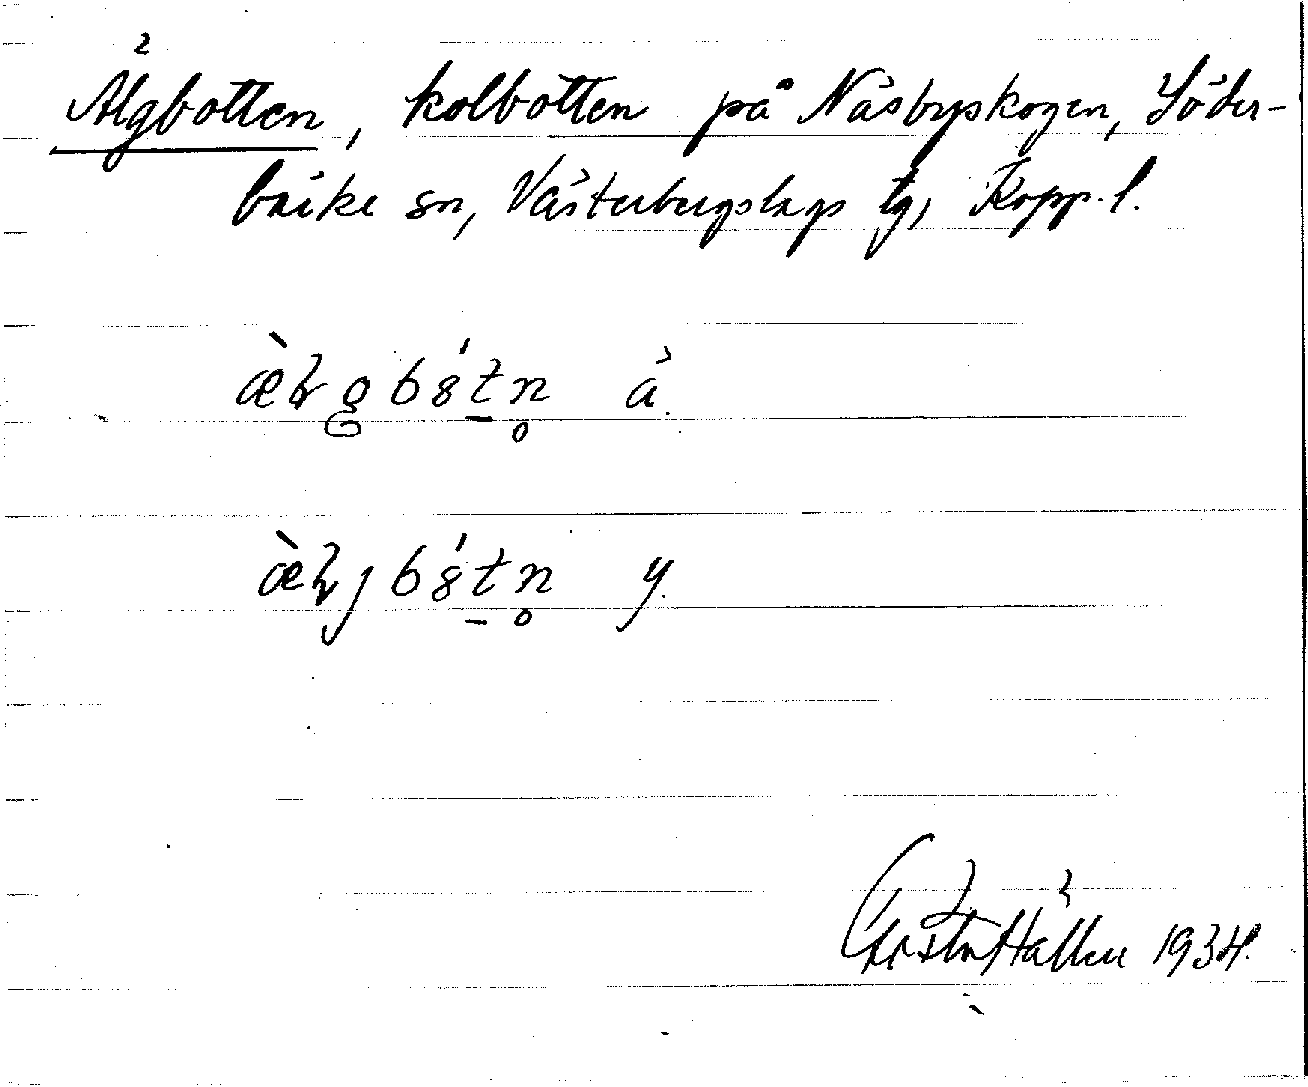 Älgbotten, kolbotten på Näsbyskogen, Söder-
bärke sn, Västerbergslags tg, Kopp. l.
ä.
y.
Gösta Hallén 1934.